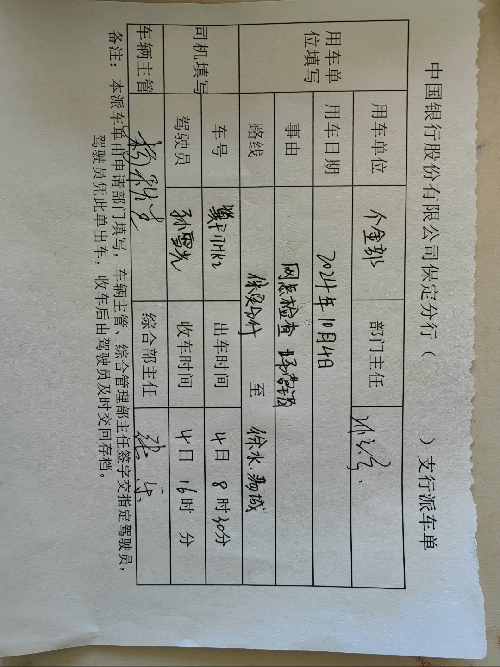 中国银行股份有限公司保定分行（ ）支行派车单
用车单位填写 用车单位 个金部 部门主任
用车日期 2024年10月4日
事由 网点检查
路线 保定分行 至 徐水.
司机填写 车号 出车时间 4日8时30分
驾驶员 孙雷光 收车时间 4日16时 分
车辆主管 综合部主任
备注：本派车单由申请部门填写，车辆主管、综合管理部主任签字交指定驾驶员，
驾驶员凭此单出车，收车后由驾驶员及时交回存档。